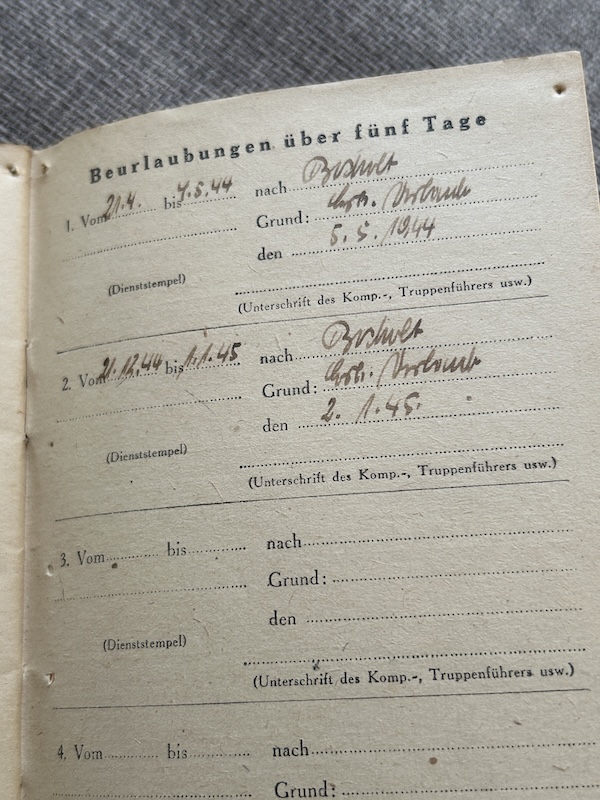 Beurlaubungen über fünf Tage
1. Vom 21.4. bis 4.5.44 nach Bocholt
Grund: Erh. Urlaub
den 5. 5. 1944
(Dienststempel)
(Unterschrift des Komp.-, Truppenführers usw.)
2. Vom 21.12.44 bis 1.1.45 nach Bocholt
Grund: Erh. Urlaub
den 2. 1. 45.
(Dienststempel)
(Unterschrift des Komp.-, Truppenführers usw.)
3. Vom bis nach
Grund:
den
(Dienststempel)
(Unterschrift des Komp.-, Truppenführers usw.)
4. Vom bis nach
Grund: